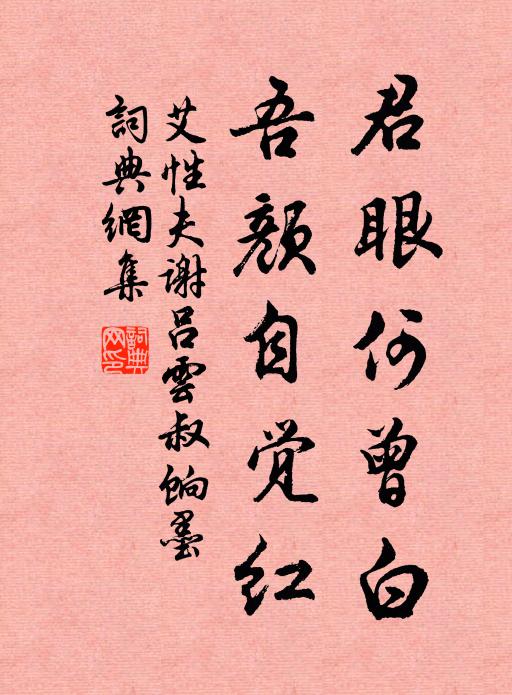 君眼何曾白
吾颜自觉红
艾性夫谢吕雲叔餉墨
詞典網集
詞典网印